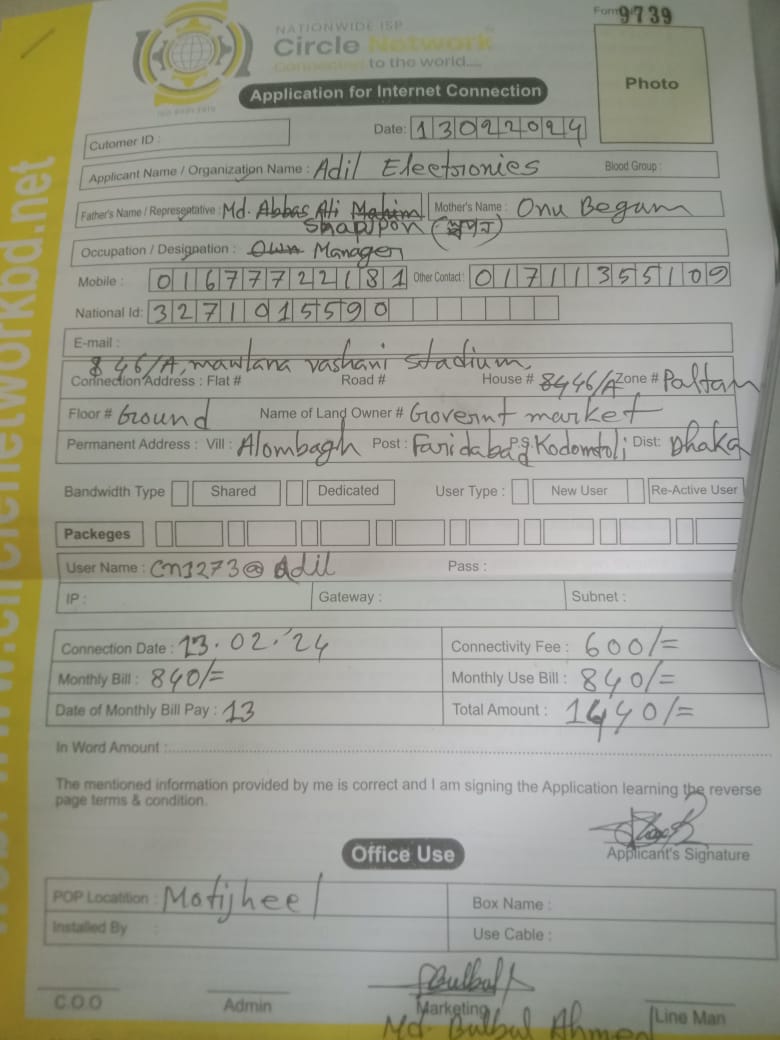 NATIONWIDE ISP
Circle Network
Connected to the world....
Form 9739
Photo
Application for Internet Connection
Cutomer ID :
Date: 13022024
Applicant Name / Organization Name : Adil Electronies Blood Group :
Father's Name / Represetative : Md. Abbas Ali Mahim Mother's Name : Onu Begum
Shappon (স্বপন)
Occupation / Designation : Own Manager
Mobile : 01677722181 Other Contact : 01711355109
National Id: 3271015590
E-mail :
8 46/A, mawlana vashani stadium,
Connection Address : Flat # Road # House # 8446/A Zone # Paltan
Floor # Ground Name of Land Owner # Governt market
Permanent Address : Vill : Alombagh Post : Faridabad PS Kodomtoli Dist: Dhaka
Bandwidth Type Shared Dedicated User Type : New User Re-Active User
Packeges
User Name : cn1273@adil Pass :
IP : Gateway : Subnet :
Connection Date : 13.02.'24 Connectivity Fee : 600/=
Monthly Bill : 840/= Monthly Use Bill : 840/=
Date of Monthly Bill Pay : 13 Total Amount : 1440/=
In Word Amount :
The mentioned information provided by me is correct and I am signing the Application learning the reverse
page terms & condition.
Applicant's Signature
Office Use
POP Locatition : Motijheel Box Name :
Installed By : Use Cable :
Bulbul
C.O.O Admin Marketing Line Man
Md. Bulbul Ahmed